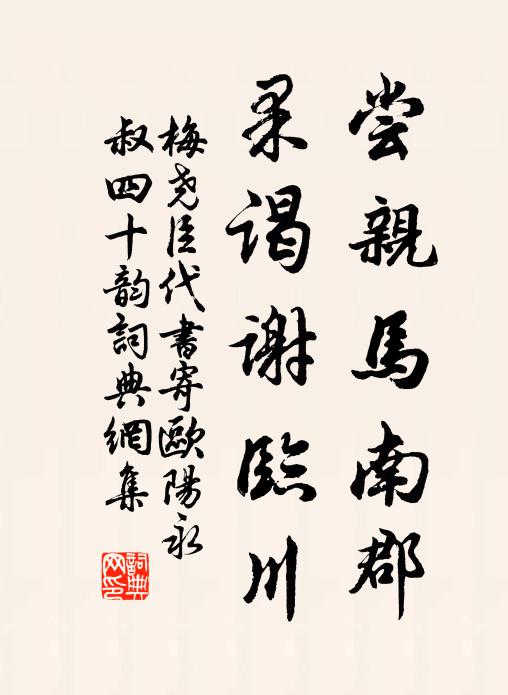 尝親馬南郡
果謁謝臨川
梅尧臣代書寄歐陽永
叔四十韵詞典網集
詞典网印